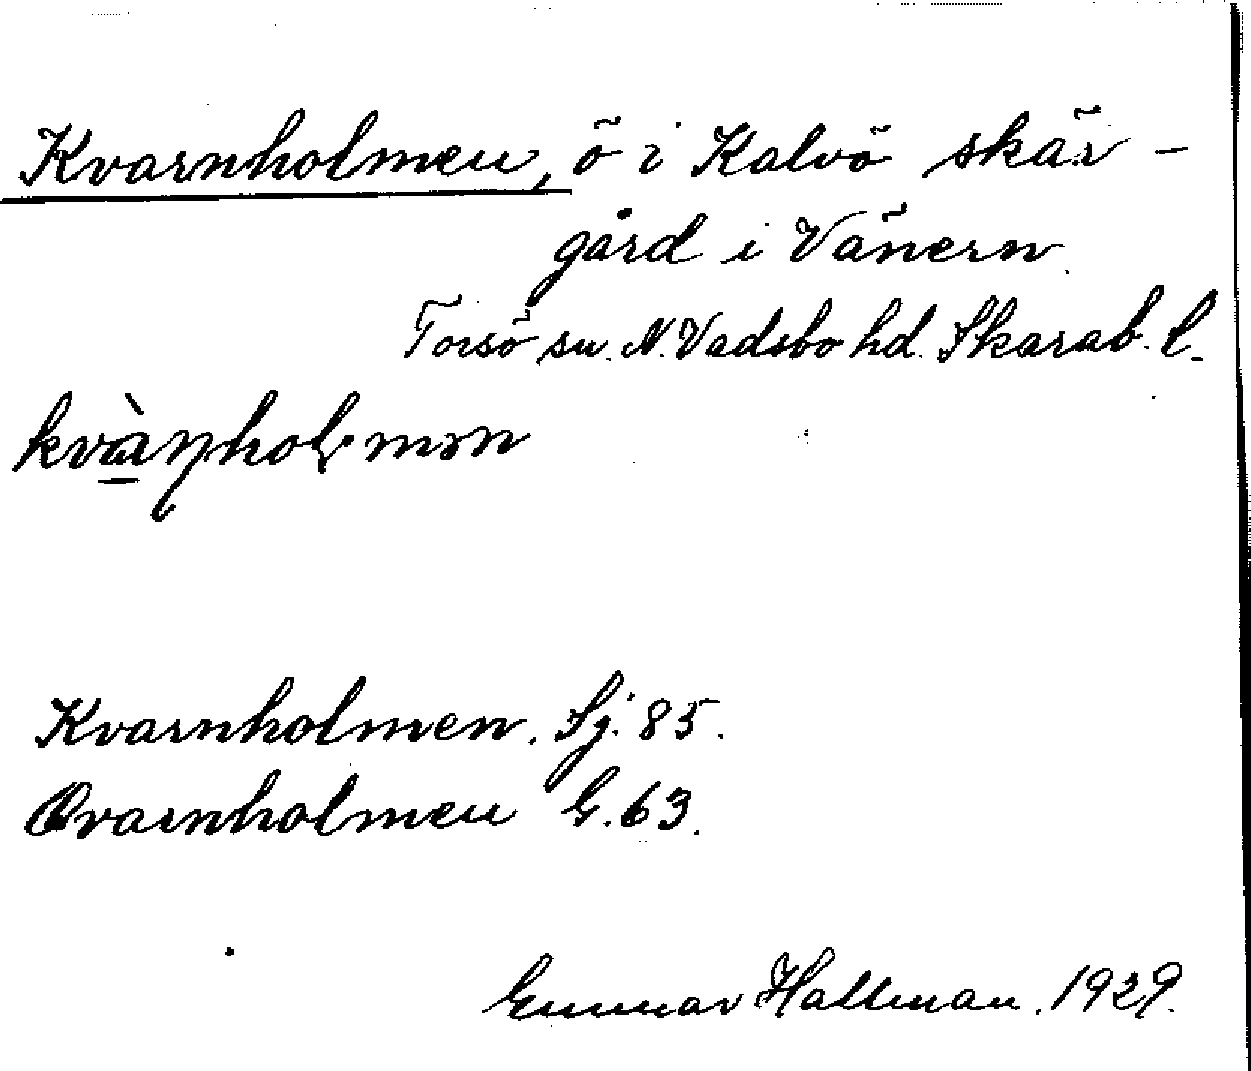 Kvarnholmen, ö i Kalvö skär-
gård i Vänern
Torsö sn. N. Vadsbo hd. Skarab. l.
kvàɳhol·mən
Kvarnholmen. Sj. 85.
Qvarnholmen G. 63.
Gunnar Hallman. 1929.